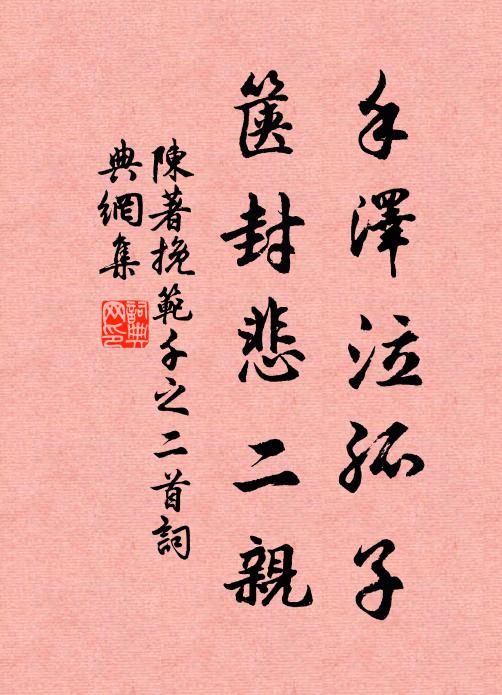 手澤泣孤子
篋封悲二親
陳著挽範千之二首詞
典網集
詞典網印